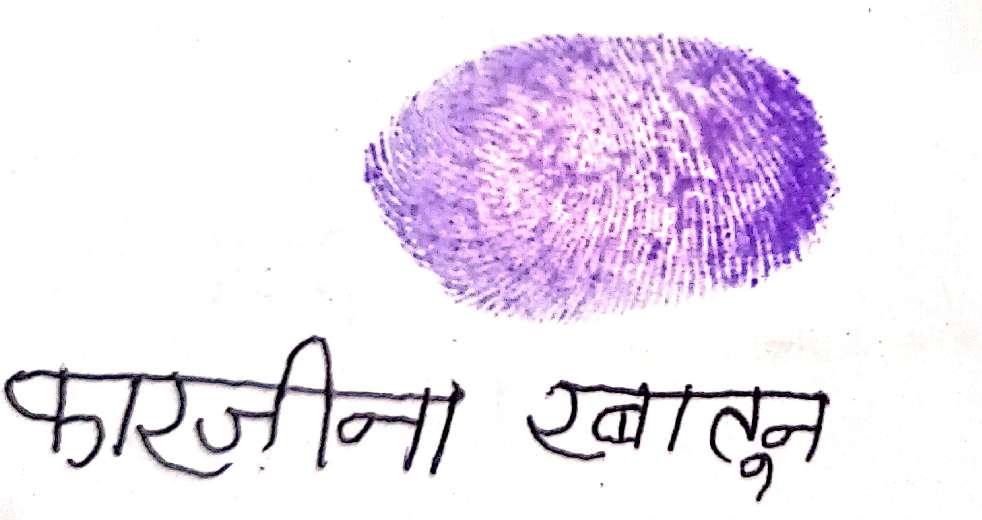 फारजीना खातून